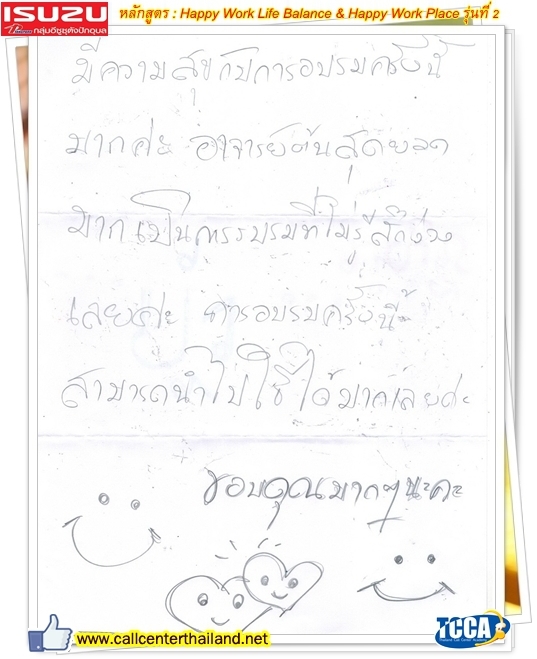 ISUZU
กลุ่มอีซูซุตังปักอุบล
หลักสูตร : Happy Work Life Balance & Happy Work Place รุ่นที่ 2
มีความสุขกับการอบรมครั้งนี้
มากค่ะ อาจารย์ต้นสุดยอด
มากเป็นการอบรมที่ไม่รู้สึกง่วง
เลยค่ะ การอบรมครั้งนี้
สามารถนำไปใช้ได้มากเลยค่ะ
ขอบคุณมากๆนะคะ
www.callcenterthailand.net
TCCA